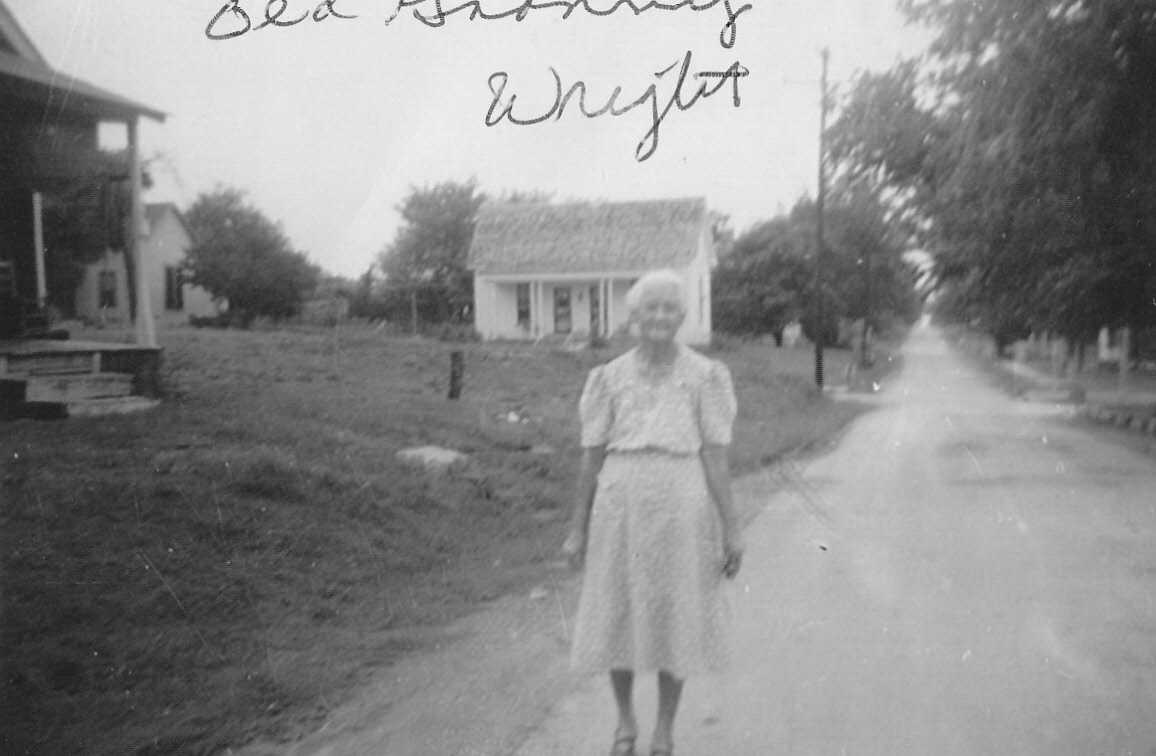 Old Granny
Wright